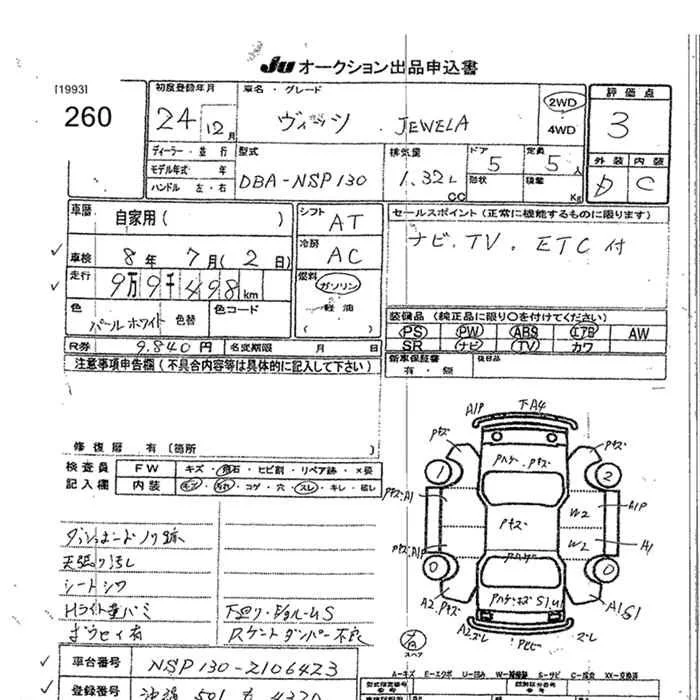 Ju オークション出品申込書
[1993]
260
初度登録年月
24 12月
車名・グレード
ヴィッツ JEWELA
2WD
4WD
評価点
3
外装 内装
D C
ディーラー・並行
モデル年式 年
ハンドル 左・右
型式
DBA-NSP130
排気量
1.32L
CC
ドア
5
定員
5人
形状
積載
Kg
車歴
自家用( )
車検 8年 7月(2日)
走行
9万9千498km
色
パールホワイト 色替
色コード
R券 9.840円 名変期限 月 日
シフト
AT
冷房
AC
燃料
ガソリン
軽油
( )
セールスポイント(正常に機能するものに限ります)
ナビ.TV.ETC付
装備品(純正品に限り○を付けてください)
PS PW ABS エアB AW
SR ナビ TV カワ
新車保証書
有・無
後日品
注意事項申告欄(不具合内容等は具体的に記入して下さい)
修復歴 有〔箇所 〕
検査員
記入欄
FW キズ・飛石・ヒビ割・リペア跡・×要
内装 キズ・汚れ・コゲ・穴・スレ・キレ・破レ
ダッシュボードノリ跡
天張り汚レ
シートシワ
Hライト黄バミ
下廻り・ショルームS
車台番号 NSP130-2106423
登録番号 沖縄 501
A1P
下A4
Pキズ
Pハゲ.Pキズ
Pキズ
1
2
Pキズ.A1
A1P
W2
Pキズ
W2
A1
Pハゲ
0
0
A2.Pキズ
A1S1
A2ズレ
Pヒビ
ズレ
スペア
A-キズ E-エクボ U-凹み W-補修跡 S-サビ C-腐食 XX-交換済